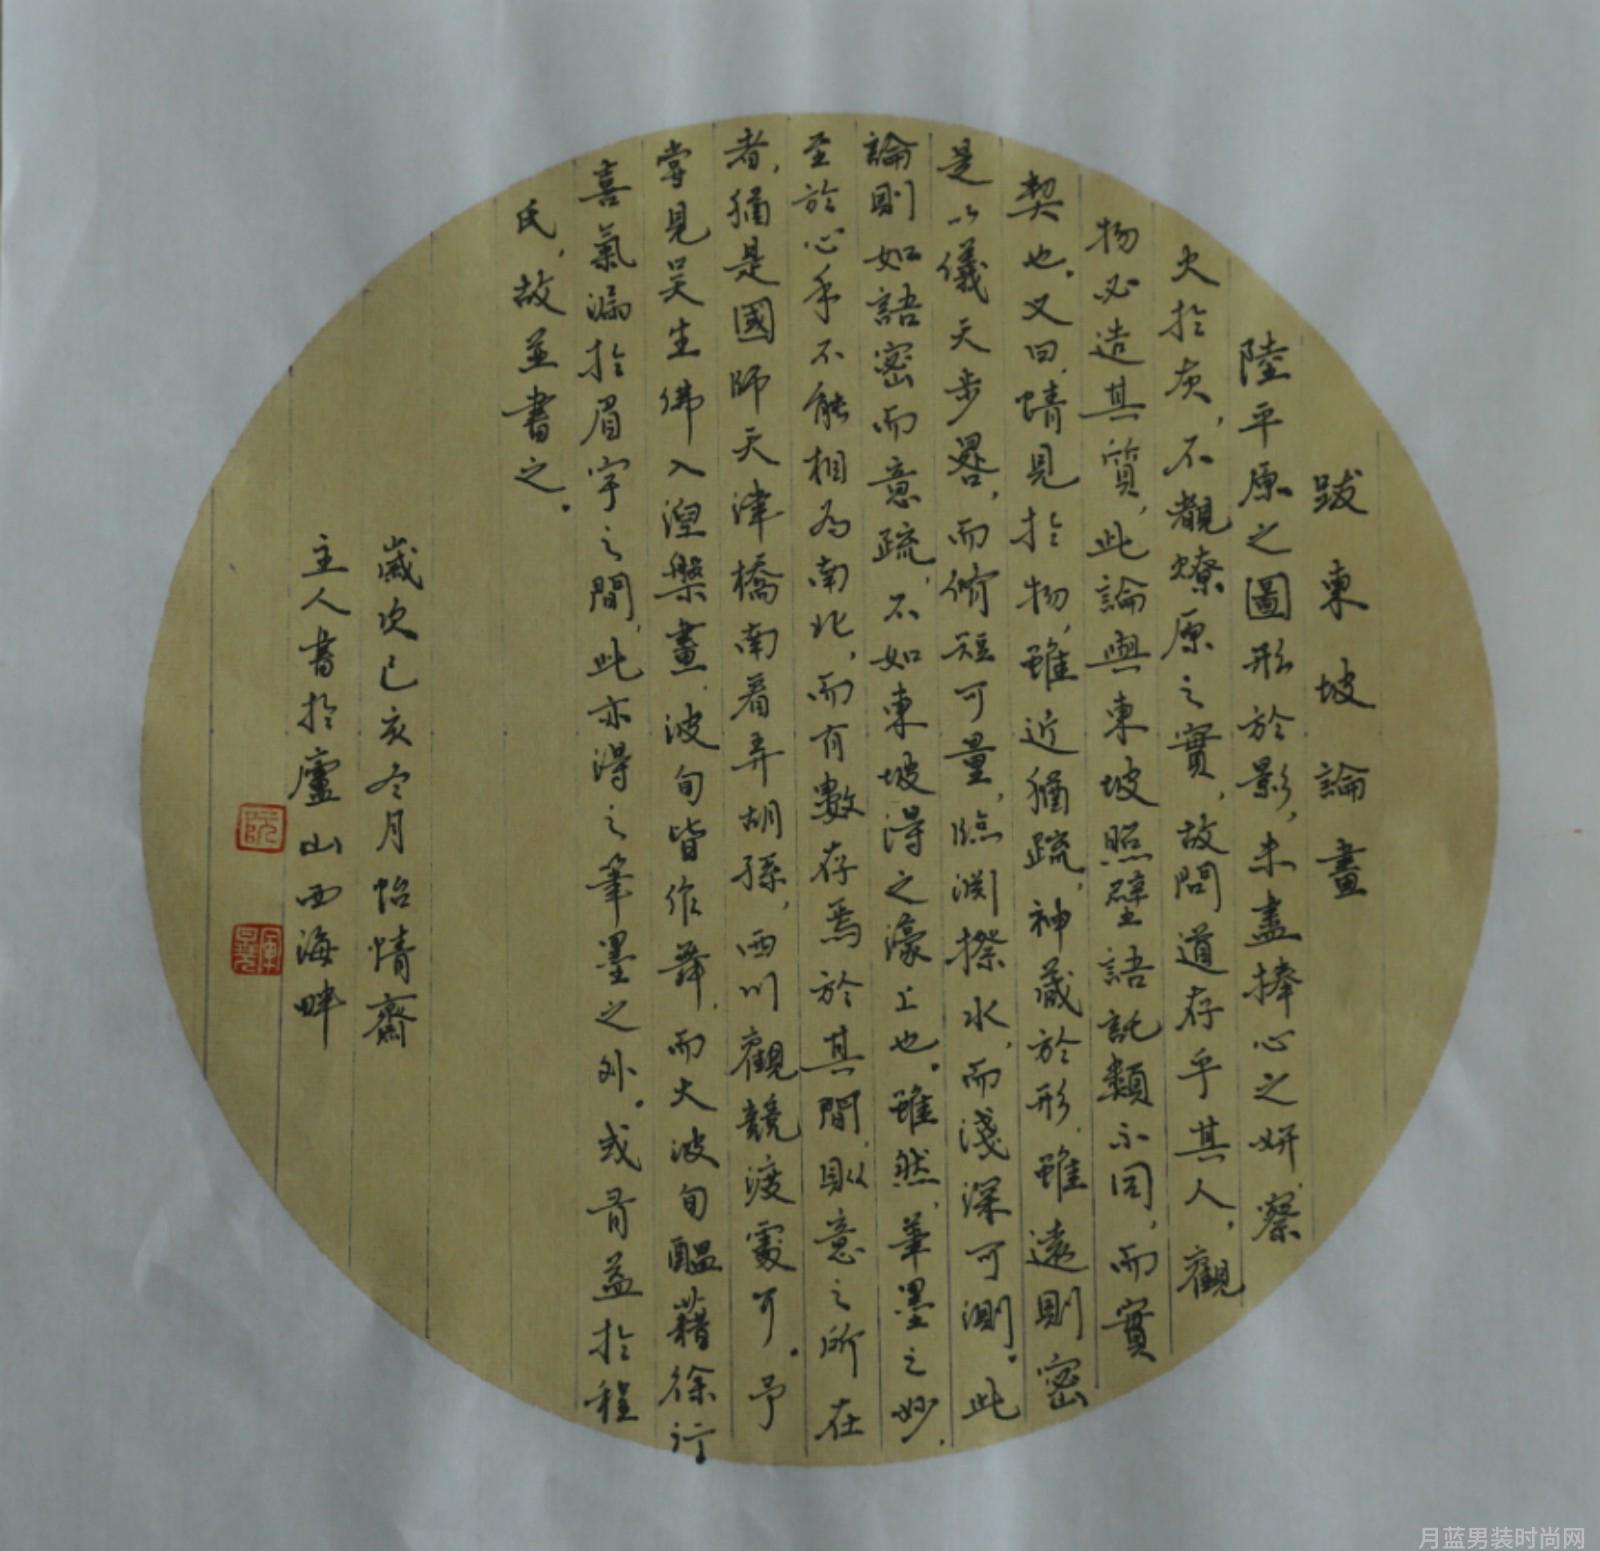 跋東坡論畫
陸平原之圖形於影，未盡捧心之妍，察
火於灰，不覩燎原之實，故問道存乎其人，觀
物必造其質，此論與東坡照壁語託類不同，而實
契也。又曰，情見於物，雖近猶疏，神藏於形，雖遠則密
是以儀天步晷，而脩短可量，臨淵揆水，而淺深可測。此
論則如語密而意疏，不如東坡得之濠上也。雖然，筆墨之妙，
至於心手不能相為南北，而有數存焉於其間，則意之所在
者，猶是國師天津橋南看弄胡孫，西川觀競渡處可。予
嘗見吳生佛入涅槃畫，波旬皆作舞，而大波旬醞藉徐行
喜氣漏於眉宇之間，此亦得之筆墨之外。或有益於程
氏，故並書之。
歲次己亥冬月怡情齋
主人書於廬山西海畔
阮
月蓝男装时尚网